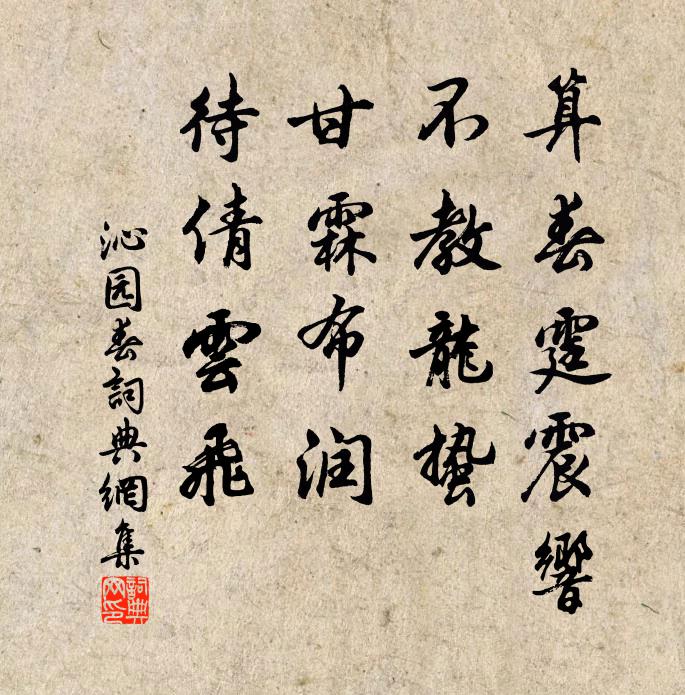 算春霆震響
不教龍蟄
甘霖布润
待倩雲飛
沁园春詞典網集
詞典网印